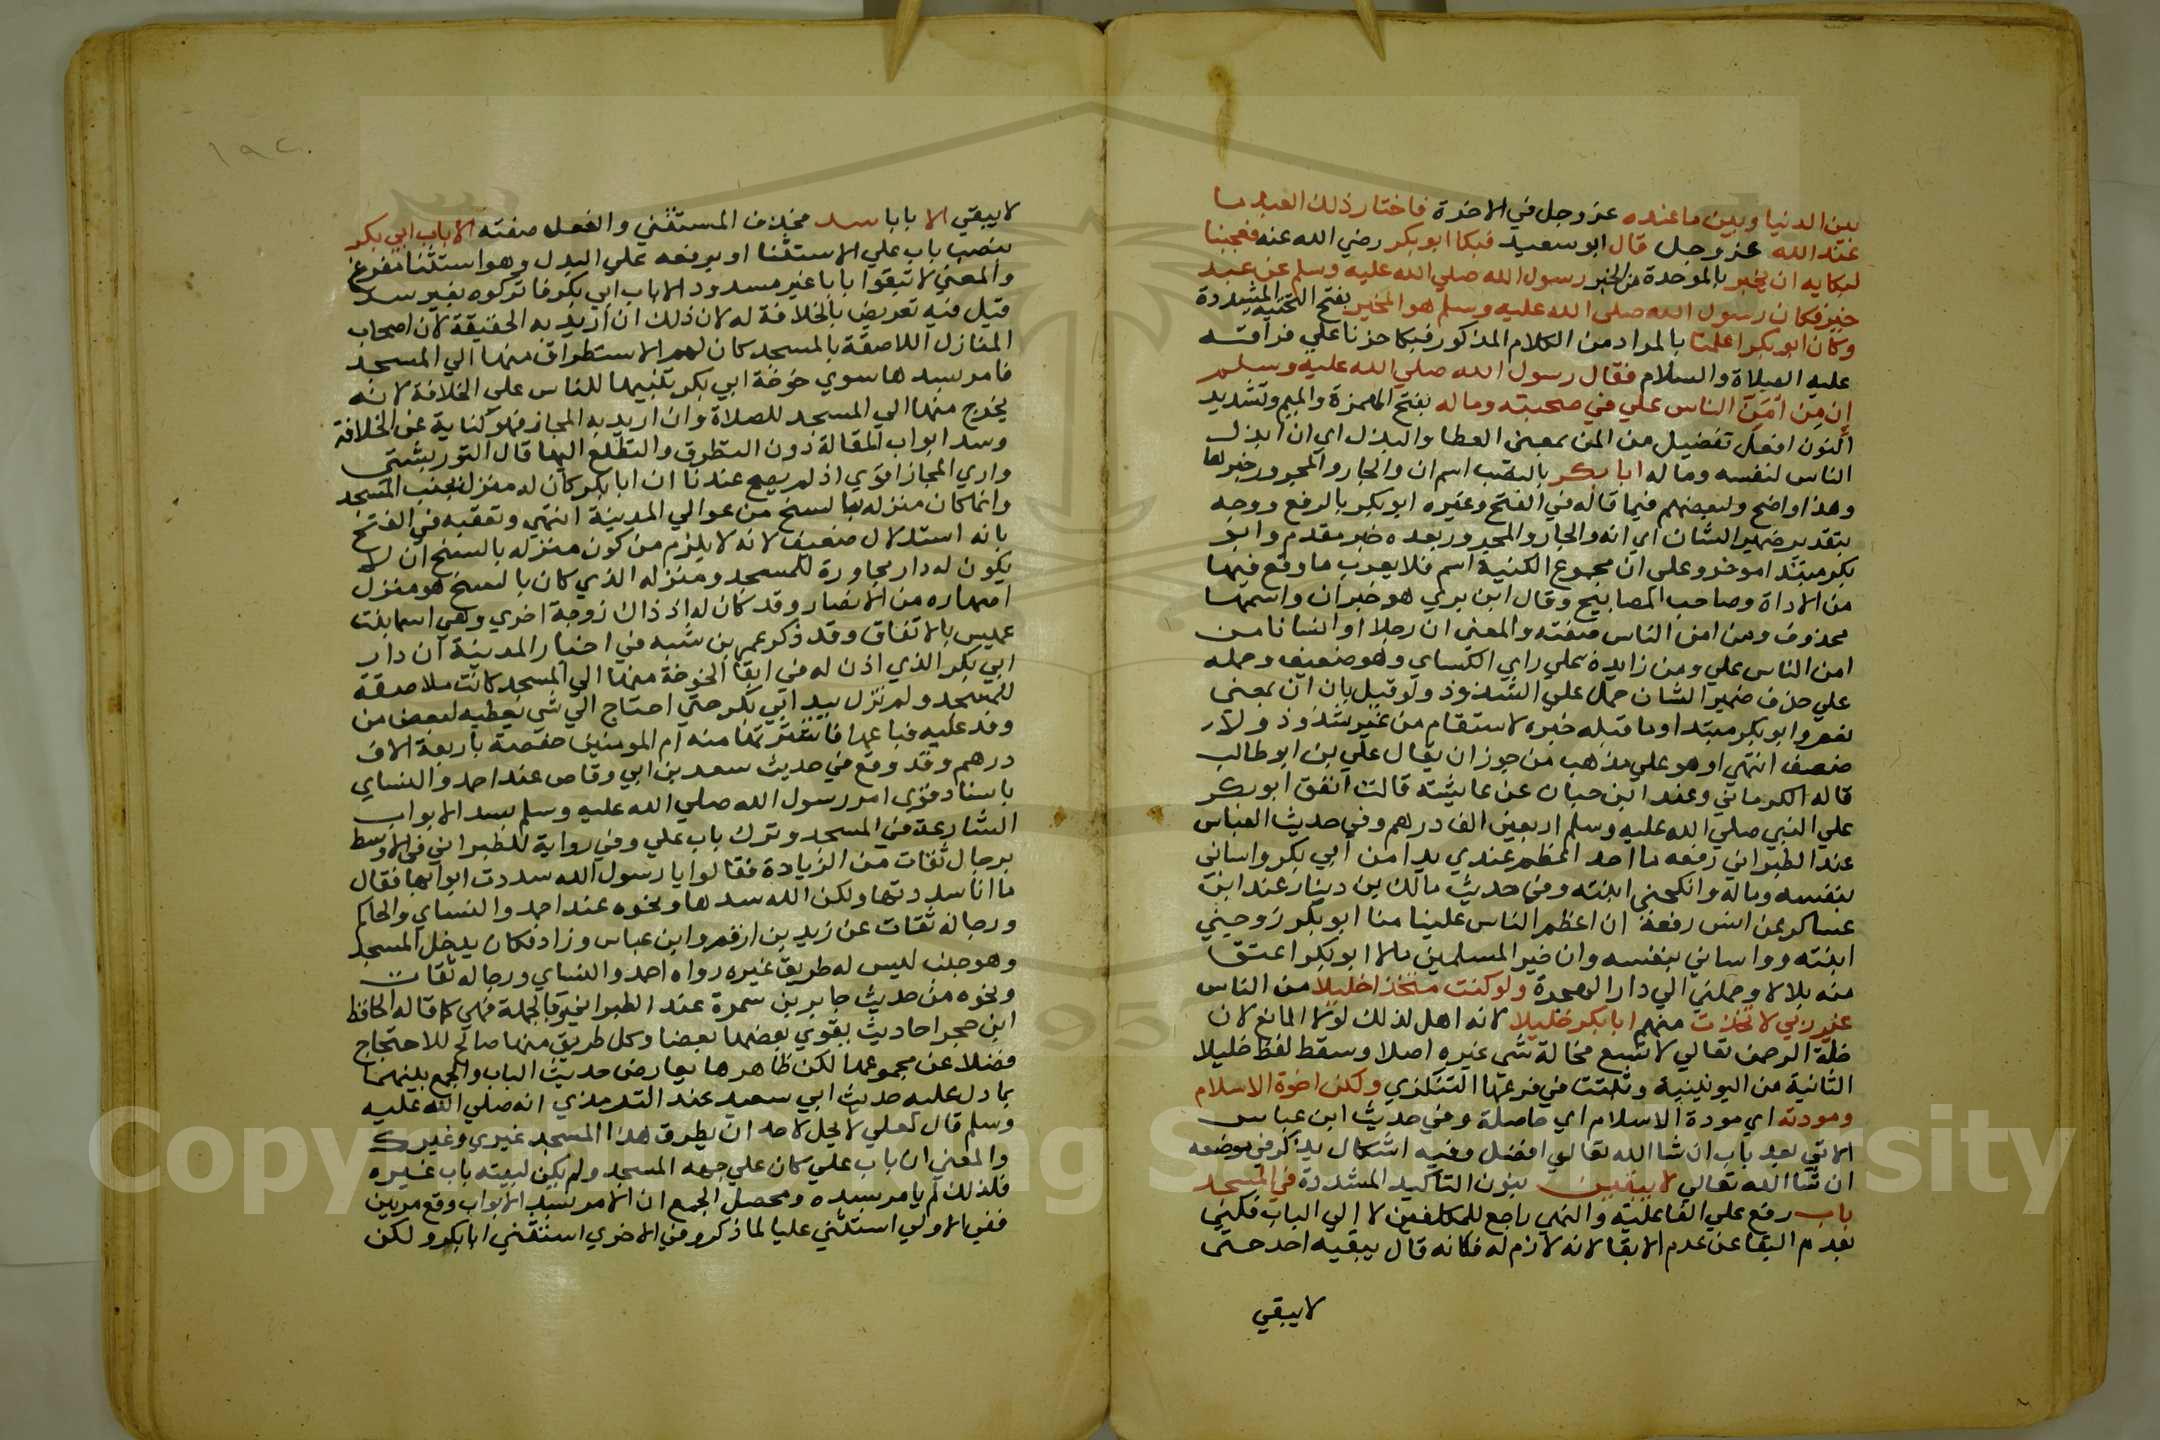 بين الدنيا وبين ما عنده عز وجل في الاخرة فاختار ذلك العبد ما
عند الله عز وجل قال ابو سعيد فبكا ابو بكر رضي الله عنه فعجبنا
لبكايه ان يخبر بالموحدة من الخبر رسول الله صلي الله عليه وسلم عن عبد
خير فكان رسول الله صلي الله عليه وسلم هو المخير بفتح التحتية المشددة
وكان ابو بكر اعلمنا بالمراد من الكلام المذكور فبكا حزنا علي فراقه
عليه الصلاة والسلام فقال رسول الله صلي الله عليه وسلم
ان من امن الناس علي في صحبته وماله بفتح الهمزة والميم وتشديد
النون افعل تفضيل من المن بمعني العطا والبذل اي ان ابذل
الناس لنفسه وماله ابا بكر بالنصب اسم ان والجار والمجرور خبرلها
وهذا واضح ولبعضهم فيما قاله في الفتح وغيره ابو بكر بالرفع ووجه
بتقدير ضمير الشان اي انه والجار والمجرور بعده خبر مقدم وابو
بكر مبتدا موخر وعلي ان مجموع الكنية اسم فلا يعرب ما وقع فيها
من الاداة وصاحب المصابيح وقال ابن بري هو خبر ان واسمها
محذوف ومن امن الناس صفته والمعني ان رجلا او انسانا من
امن الناس علي ومن زايدة علي راي الكساي وهو ضعيف وحمله
علي حذف ضمير الشان حمل علي الشذوذ ولو قيل بان ان بمعني
نعم وابو بكر مبتدا وما قبله خبره لاستقام من غير شذوذ ولا
ضعف انتهي او هو علي مذهب من جوز ان يقال علي بن ابو طالب
قاله الكرماني وعند ابن حبان عن عايشة قالت انفق ابو بكر
علي النبي صلي الله عليه وسلم اربعين الف درهم وفي حديث العباس
عند الطبراني رفعه ما احد اعظم عندي يدا من ابي بكر واساني
بنفسه وماله وانكحني ابنته وفي حديث مالك بن دينار عند ابن
عساكر عن انس رفعه ان اعظم الناس علينا منا ابو بكر زوجني
ابنته وواساني بنفسه وان خير المسلمين مالا ابو بكر اعتق
منه بلالا وحملني الي دار الهجرة ولو كنت متخذا خليلا من الناس
غير ربي لاتخذت منهم ابا بكر خليلا لانه اهل لذلك لولا المانع لان
خلة الرحمن تعالي لا تسع مخالة شي غيره اصلا وسقط لفظ خليلا
الثانية من اليونينية وثبتت في فرعها التنكزي ولكن اخوة الاسلام
ومودته اي مودة الاسلام اي حاصلة وفي حديث ابن عباس
الاتي بعد باب ان شا الله تعالي افضل وفيه اشكال يذكر في موضعه
ان شا الله تعالي لا يبقين بنون التاكيد المشددة في المسجد
باب رفع علي الفاعلية والنهي راجع للمكلفين لا الي الباب فكني
بعدم البقا عن عدم الابقا لانه لازم له فكانه قال يبقيه احد حتي
لا يبقي
١٩٢
لا يبقي الا بابا سد بخلاف المستثني والفعل صفته الا باب ابي بكر
بنصب باب علي الاستثنا او برفعه علي البدل وهو استثنا مفرغ
والمعني لا تبقوا بابا غير مسدود الا باب ابي بكر فاتركوه بغير سد
قيل فيه تعريض بالخلافة له لان ذلك ان اريد به الحقيقة لان اصحاب
المنازل اللاصقة بالمسجد كان لهم الاستطراق منها الي المسجد
فامر بسدها سوي خوخة ابي بكر تنبيها للناس علي الخلافة لانه
يخرج منها الي المسجد للصلاة وان اريد به المجاز فهو كناية عن الخلافة
وسد ابواب المقالة دون التطرق والتطلع اليها قال التوربشتي
واري المجاز اقوي اذ لم يصح عندنا ان ابا بكر كان له منزل بجنب المسجد
وانما كان منزله بالسنح من عوالي المدينة انتهي وتعقبه في الفتح
بانه استدلال ضعيف لانه لا يلزم من كون منزله بالسنح ان لا
يكون له دار مجاورة للمسجد ومنزله الذي كان بالسنح هو منزل
اصهاره من الانصار وقد كان له اذ ذاك زوجة اخري وهي اسما بنت
عميس بالاتفاق وقد ذكر عمر بن شبه في اخبار المدينة ان دار
ابي بكر الذي اذن له في ابقا الخوخة منها الي المسجد كانت ملاصقة
للمسجد ولم تزل بيد ابي بكر حتي احتاج الي شي يعطيه لبعض من
وفد عليه فباعها فاشترتها منه ام المومنين حفصة باربعة الاف
درهم وقد وقع في حديث سعد بن ابي وقاص عند احمد والنساي
باسناد قوي امر رسول الله صلي الله عليه وسلم بسد الابواب
الشارعة في المسجد وترك باب علي وفي رواية للطبراني في الاوسط
برجال ثقات من الزيادة فقالوا يا رسول الله سددت ابوابها فقال
ما انا سددتها ولكن الله سدها ونحوه عند احمد والنساي والحاكم
ورجاله ثقات عن زيد بن ارقم وابن عباس وزاد فكان يدخل المسجد
وهو جنب ليس له طريق غيره رواه احمد والنساي ورجاله ثقات
ونحوه من حديث جابر بن سمرة عند الطبراني وبالجملة فهي كما قاله الحافظ
ابن حجر احاديث يقوي بعضها بعضا وكل طريق منها صالح للاحتجاج
فضلا عن مجموعها لكن ظاهرها يعارض حديث الباب والجمع بينهما
بما دل عليه حديث ابي سعيد عند الترمذي انه صلي الله عليه
وسلم قال لعلي لا يحل لاحد ان يطرق هذا المسجد غيري وغيرك
والمعني ان باب علي كان علي جهه المسجد ولم يكن لبيته باب غيره
فلذلك لم يامر بسده ومحصل الجمع ان الامر بسد الابواب وقع مرتين
ففي الاولي استثني عليا لما ذكر وفي الاخري استثني ابا بكر ولكن
Copyright © King Saud University